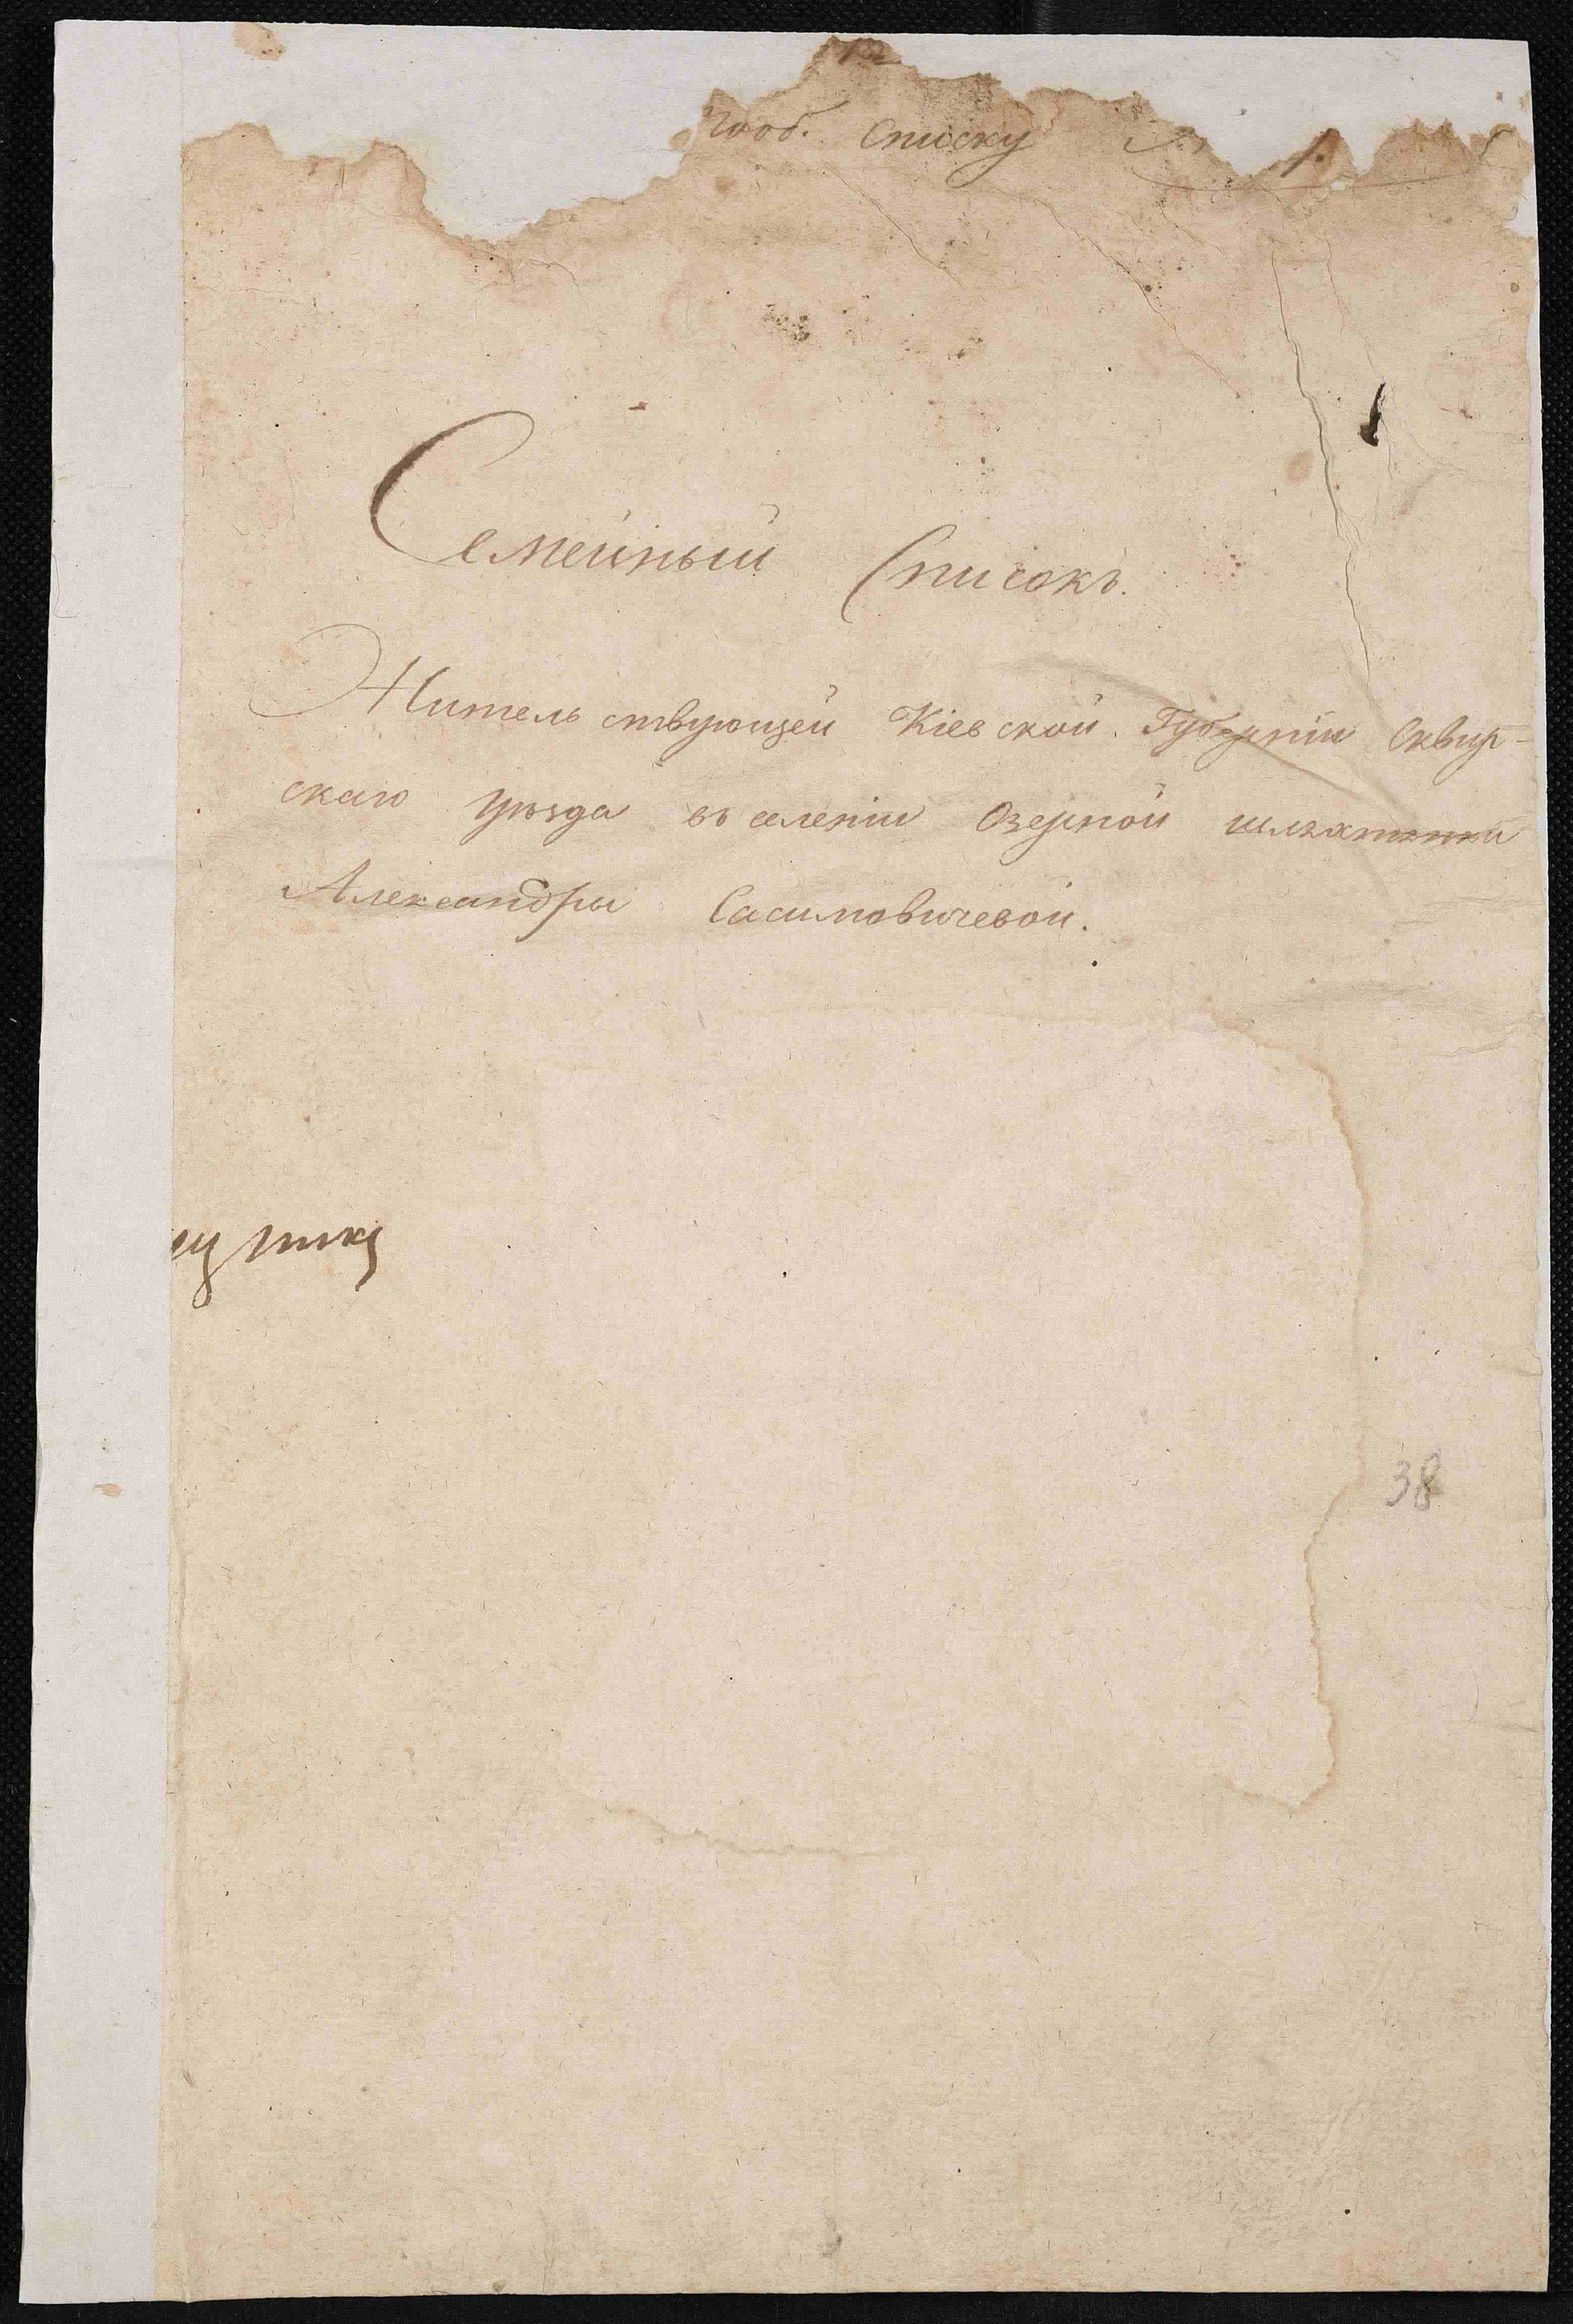 Списку
Семейный Списокъ.
Жительствующей Кіевской Губерніи Сквир-
скаго уѣзда въ селеніи Озерной шляхтянки
Александры Сасимовичевой.
38